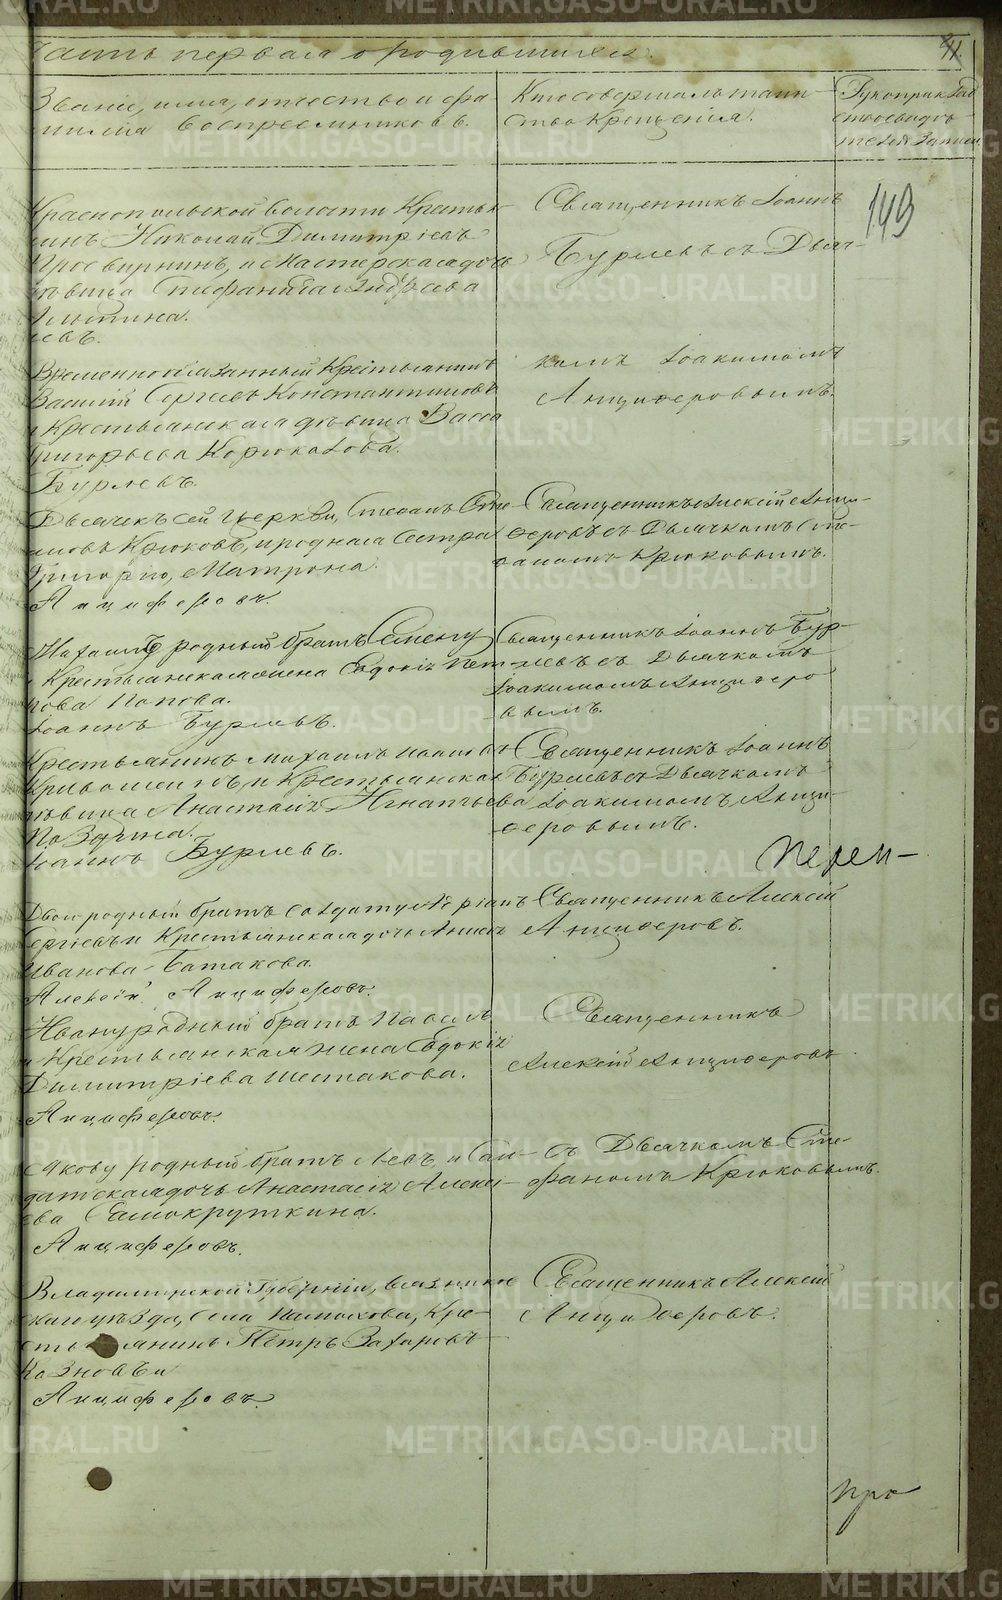 METRIKI.GASO-URAL.RU
Часть первая о родившихся.
41.
Званіе, имя, отчество и фа-
милія воспреемниковъ.
Кто совершалъ таин-
ство крещенія.
Рукоприклад
ство свидѣ-
телей записи
149
Краснопольской волости Кресть
янинъ Николай Димитріевъ
Просвирнинъ, и Мастерская дочь
дѣвица Стефанида Андреева
Священникъ Іоаннъ
Бурлевъ съ Дьяч-
Временнообязанный Крестьянинъ
Василій Сергѣевъ Константиновъ
и Крестьянская дѣвица Васса
Григорьева Корюкалова.
Бурлевъ.
комъ Іоакимомъ
Анциферовымъ.
Дьячекъ сей церкви, Стефанъ Сте
ановъ Крюковъ, и родная сестра
Григорію, Матрона.
Анциферовъ.
Священникъ Алексій Анци-
феровъ съ Дьячкомъ Сте-
фаномъ Крюковымъ.
родный братъ Семену
и Крестьянская жена Евдокія Пет-
рова Попова.
Іоаннъ Бурлевъ.
Священникъ Іоаннъ Бур-
левъ съ Дьячкомъ
Іоакимомъ Анциферо
вымъ.
Крестьянинъ Михаилъ
и Крестьянская
дѣвица Анастасія Игнатьева
Іоаннъ Бурлевъ.
Священникъ Іоаннъ
Бурлевъ съ Дьячкомъ
Іоакимомъ Анци-
феровымъ.
Двоюродный братъ солдату
Сергіевъ и Крестьянская дочь
Иванова Батакова.
Алексій Анциферовъ.
Священникъ Алексій
Анциферовъ.
Ивану родный братъ Павелъ
и Крестьянская жена Евдокія
Димитріева Шестакова.
Анциферовъ.
Священникъ
Алексій Анциферовъ
Якову родный братъ Левъ и Сол-
датская дочь Анастасія Алексѣ-
ева Самокруткина.
Анциферовъ.
съ Дьячкомъ Сте-
фаномъ Крюковымъ.
Владимирской Губерніи, Вязников
скаго уѣзда, села Крe-
стьянинъ Петръ Захаровъ
Анциферовъ.
Священникъ Алексій
Анциферовъ.